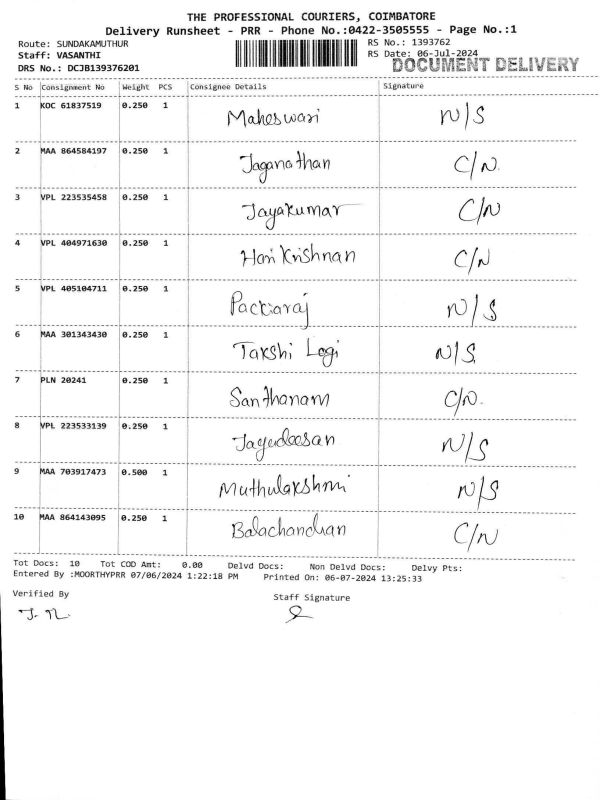 THE PROFESSIONAL COURIERS, COIMBATORE
Delivery Runsheet - PRR - Phone No.:0422-3505555 - Page No.:1
Route: SUNDAKAMUTHUR RS No.: 1393762
Staff: VASANTHI RS Date: 06-Jul-2024
DRS No.: DCJB139376201 DOCUMENT DELIVERY
S No Consignment No Weight PCS Consignee Details Signature
1 KOC 61837519 0.250 1 Maheswari N/S
2 MAA 864584197 0.250 1 Jaganathan C/N.
3 VPL 223535458 0.250 1 Jayakumar C/N
4 VPL 404971630 0.250 1 Hari Krishnan C/N
5 VPL 405104711 0.250 1 Packiaraj N/S
6 MAA 301343430 0.250 1 Takshi Logi N/S
7 PLN 20241 0.250 1 Santhanam C/N.
8 VPL 223533139 0.250 1 Jagadeesan N/S
9 MAA 703917473 0.500 1 Muthulakshmi N/S
10 MAA 864143095 0.250 1 Balachandran C/N
Tot Docs: 10 Tot COD Amt: 0.00 Delvd Docs: Non Delvd Docs: Delvy Pts:
Entered By :MOORTHYPRR 07/06/2024 1:22:18 PM Printed On: 06-07-2024 13:25:33
Verified By Staff Signature
J. R.